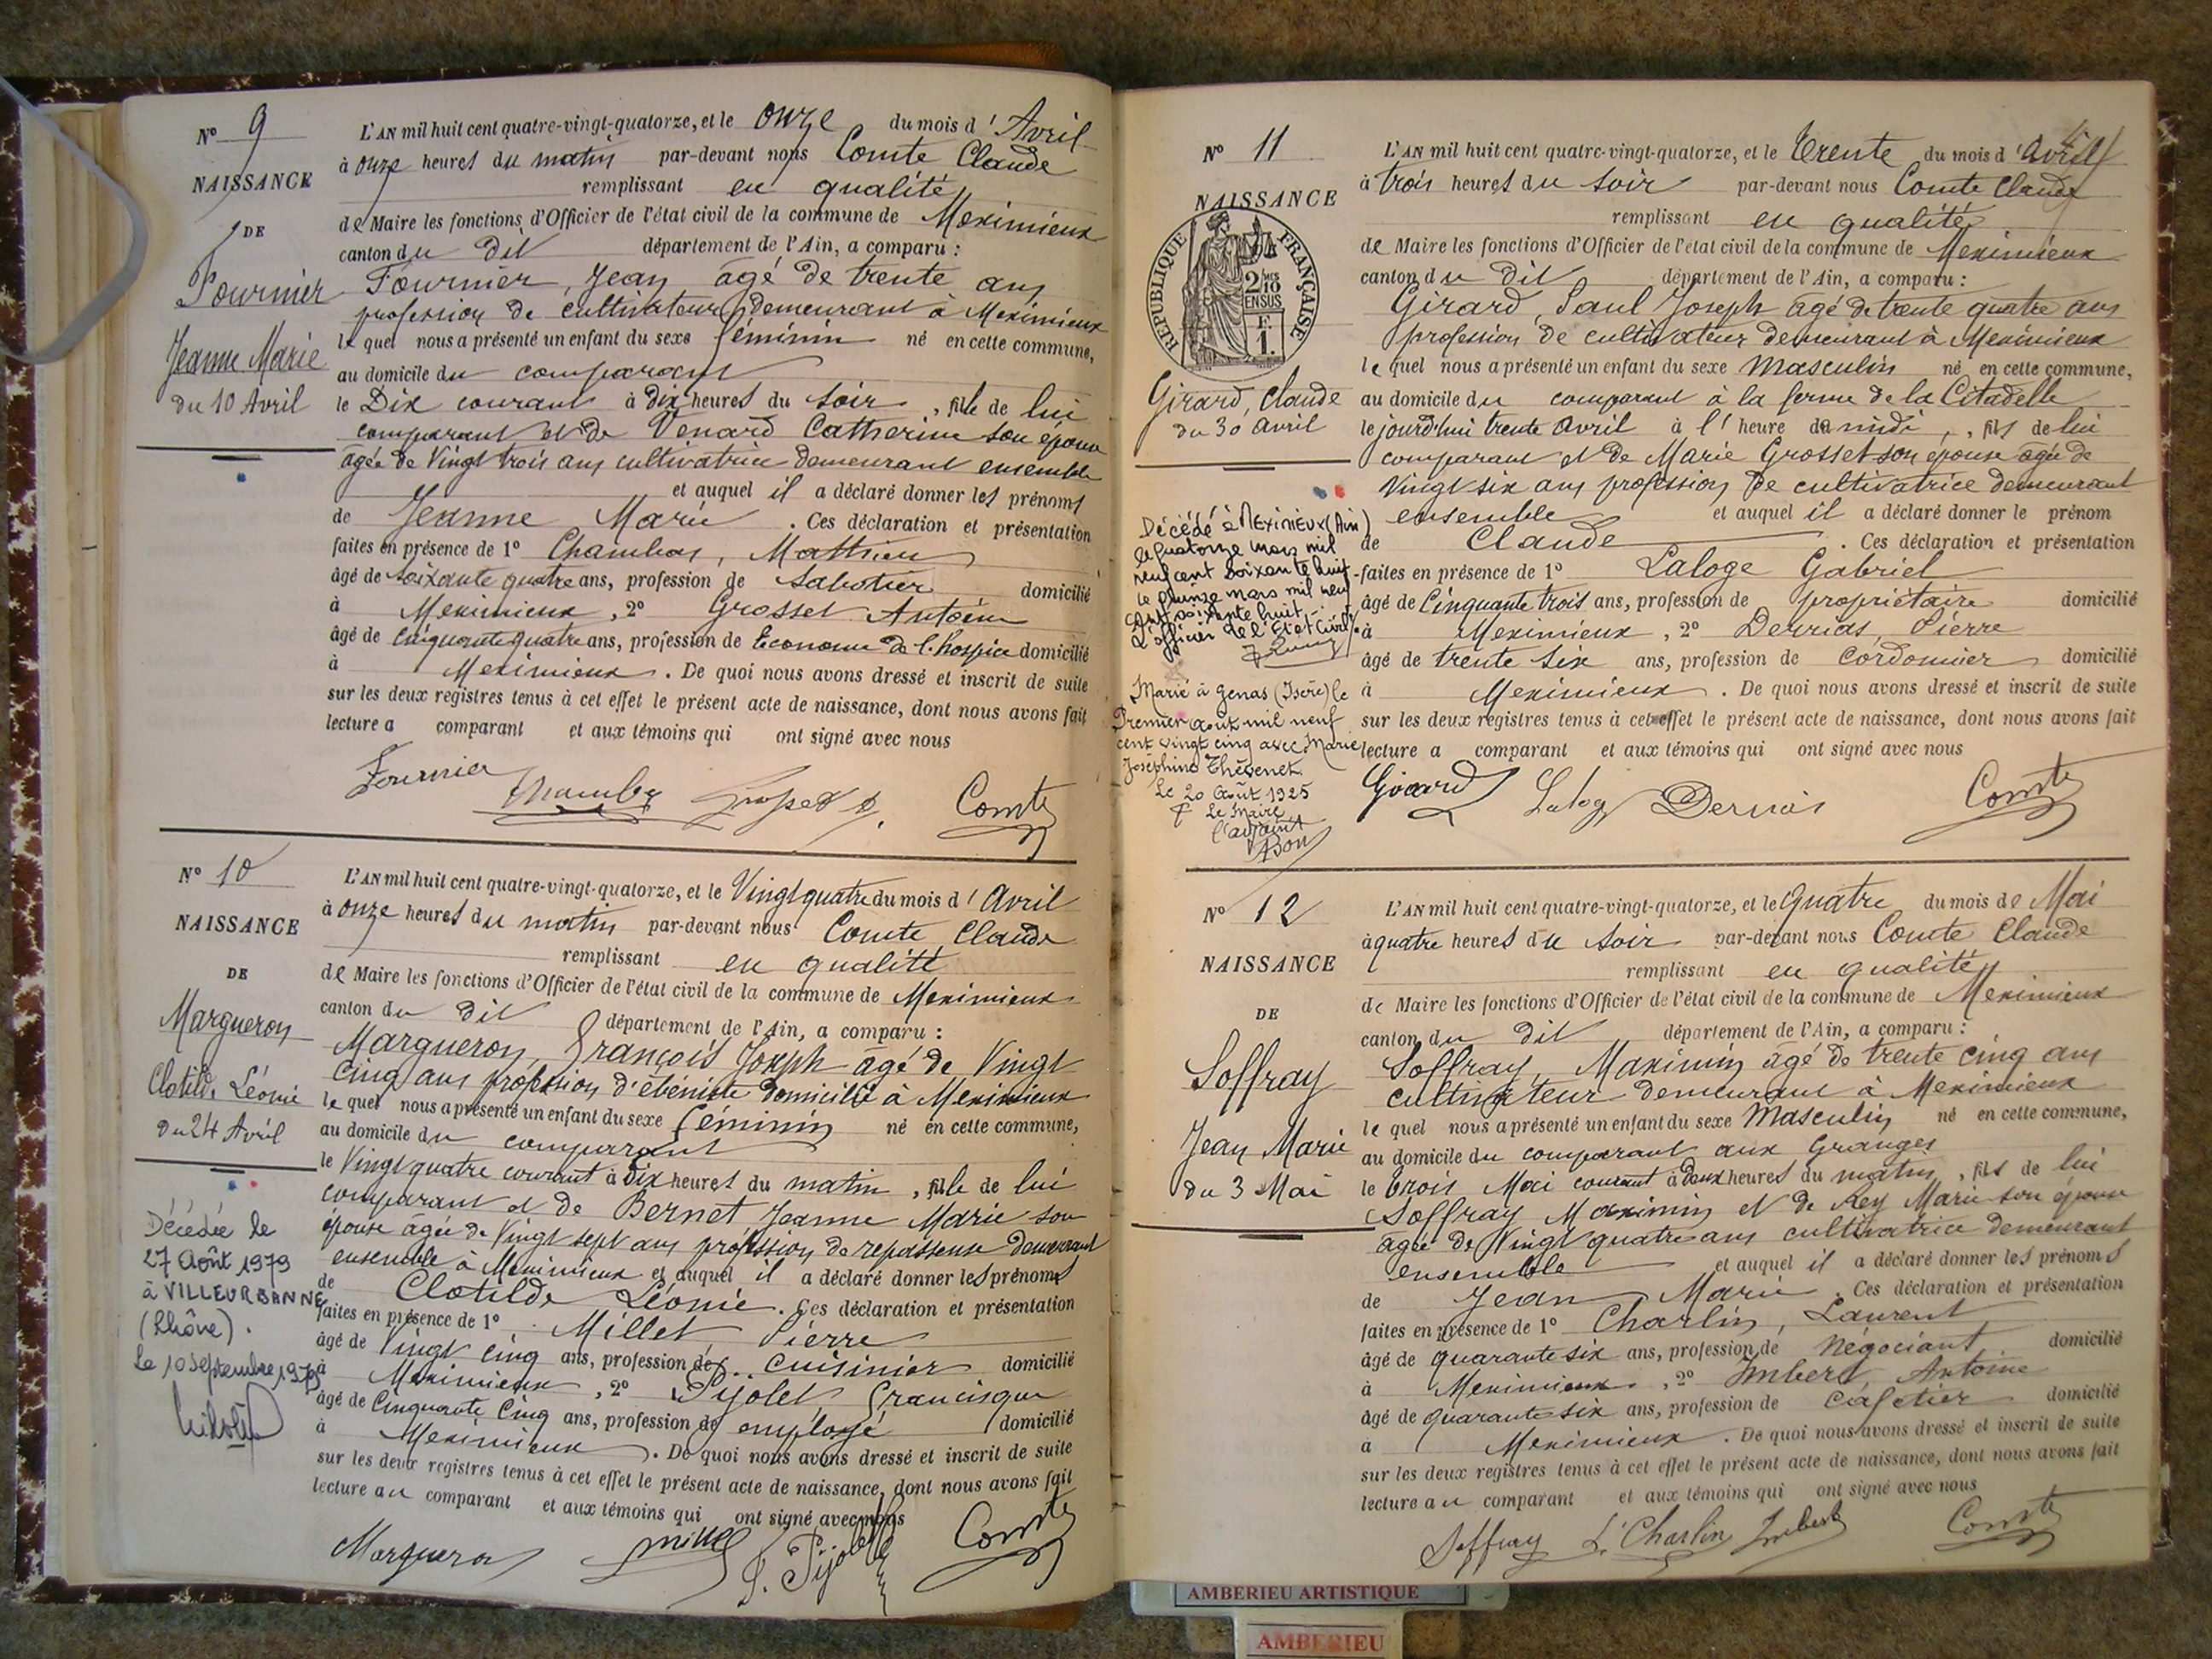 N° 9
NAISSANCE
DE
Fournier
Jeanne Marie
du 10 Avril
L'AN mil huit cent quatre-vingt-quatorze, et le onze du mois d'Avril
à onze heures du matin par-devant nous Comte Claude
remplissant en qualité
de Maire les fonctions d'Officier de l'état civil de la commune de Meximieux
canton du dit département de l'Ain, a comparu :
Fournier, Jean âgé de trente ans
profession de cultivateur demeurant à Meximieux
lequel nous a présenté un enfant du sexe féminin né en cette commune,
au domicile du comparant
le Dix courant à dix heures du soir, fille de lui
comparant et de Venard Catherine son épouse
agée de Vingt trois ans cultivatrice demeurant ensemble
et auquel il a déclaré donner les prénoms
de Jeanne Marie. Ces déclaration et présentation
faites en présence de 1° Chambas, Mathieu
âgé de soixante quatre ans, profession de Sabotier domicilié
à Meximieux, 2° Grosset Antoine
âgé de cinquante quatre ans, profession de Econome de l'hospice domicilié
à Meximieux. De quoi nous avons dressé et inscrit de suite
sur les deux registres tenus à cet effet le présent acte de naissance, dont nous avons fait
lecture a comparant et aux témoins qui ont signé avec nous
Fournier Comte
N° 10
NAISSANCE
DE
Margueron
Clotilde Léonie
du 24 Avril
Décédée le
27 Août 1979
à VILLEURBANNE
(Rhône).
Le 10 septembre 1979
L'AN mil huit cent quatre-vingt-quatorze, et le Vingt quatre du mois d'Avril
à onze heures du matin par-devant nous Comte Claude
remplissant en qualité
de Maire les fonctions d'Officier de l'état civil de la commune de Meximieux
canton du dit département de l'Ain, a comparu :
Margueron, François Joseph âgé de Vingt
cinq ans profession d'ébéniste domicilié à Meximieux
lequel nous a présenté un enfant du sexe féminin né en cette commune,
au domicile du comparant
le Vingt quatre courant à Dix heures du matin, fille de lui
comparant et de Bernet Jeanne Marie son
épouse agée de Vingt sept ans profession de repasseuse demeurant
ensemble à Meximieux et auquel il a déclaré donner les prénoms
de Clotilde Léonie. Ces déclaration et présentation
faites en présence de 1° Millet Pierre
âgé de Vingt cinq ans, profession de cuisinier domicilié
à Meximieux, 2° Pijolet, Francisque
âgé de Cinquante Cinq ans, profession de employé domicilié
à Meximieux. De quoi nous avons dressé et inscrit de suite
sur les deux registres tenus à cet effet le présent acte de naissance, dont nous avons fait
lecture au comparant et aux témoins qui ont signé avec nous
Margueron Millet Comte
N° 11
NAISSANCE
REPUBLIQUE FRANÇAISE
2/10 EN SUS
F. 1.
Girard, Claude
du 30 Avril
Décédé à MEXIMIEUX (Ain)
le quatorze mars mil
neuf cent soixante huit.
le quinze mars mil neuf
cent soixante huit.
L'officier de l'Etat Civil
Marié à Genas (Isère) le
Premier août mil neuf
cent vingt cinq avec Marie
Joséphine Thévenet.
Le 20 Août 1925
Le Maire
l'adjoint
L'AN mil huit cent quatre-vingt-quatorze, et le Trente du mois d'Avril
à trois heures du soir par-devant nous Comte Claude
remplissant en qualité
de Maire les fonctions d'Officier de l'état civil de la commune de Meximieux
canton du dit département de l'Ain, a comparu :
Girard, Paul Joseph agé de trente quatre ans
profession de cultivateur demeurant à Meximieux
lequel nous a présenté un enfant du sexe Masculin né en cette commune,
au domicile du comparant à la ferme de la Citadelle
le jourd'hui trente Avril à l'heure de midi, fils de lui
comparant et de Marie Grosset son épouse agée de
Vingt six ans profession de cultivatrice demeurant
ensemble et auquel il a déclaré donner le prénom
de Claude. Ces déclaration et présentation
faites en présence de 1° Laloge Gabriel
âgé de Cinquante trois ans, profession de propriétaire domicilié
à Meximieux, 2° Pierre
âgé de trente six ans, profession de cordonnier domicilié
à Meximieux. De quoi nous avons dressé et inscrit de suite
sur les deux registres tenus à cet effet le présent acte de naissance, dont nous avons fait
lecture a comparant et aux témoins qui ont signé avec nous
Girard Comte
N° 12
NAISSANCE
DE
Soffray
Jean Marie
du 3 Mai
L'AN mil huit cent quatre-vingt-quatorze, et le Quatre du mois de Mai
à quatre heures du soir par-devant nous Comte Claude
remplissant en qualité
de Maire les fonctions d'Officier de l'état civil de la commune de Meximieux
canton du dit département de l'Ain, a comparu :
Soffray, Maximin agé de trente cinq ans
cultivateur demeurant à Meximieux
lequel nous a présenté un enfant du sexe Masculin né en cette commune,
au domicile du comparant aux Granges
le trois Mai courant à deux heures du matin, fils de lui
Soffray Maximin et de Rey Marie son épouse
agée de Vingt quatre ans cultivatrice demeurant
ensemble et auquel il a déclaré donner les prénoms
de Jean Marie. Ces déclaration et présentation
faites en présence de 1° Charlin, Laurent
âgé de quarante six ans, profession de Négociant domicilié
à Meximieux, 2° Imbert Antoine
âgé de quarante six ans, profession de Cafetier domicilié
à Meximieux. De quoi nous avons dressé et inscrit de suite
sur les deux registres tenus à cet effet le présent acte de naissance, dont nous avons fait
lecture au comparant et aux témoins qui ont signé avec nous
Soffray L. Charlin Imbert Comte
AMBERIEU ARTISTIQUE
AMBERIEU